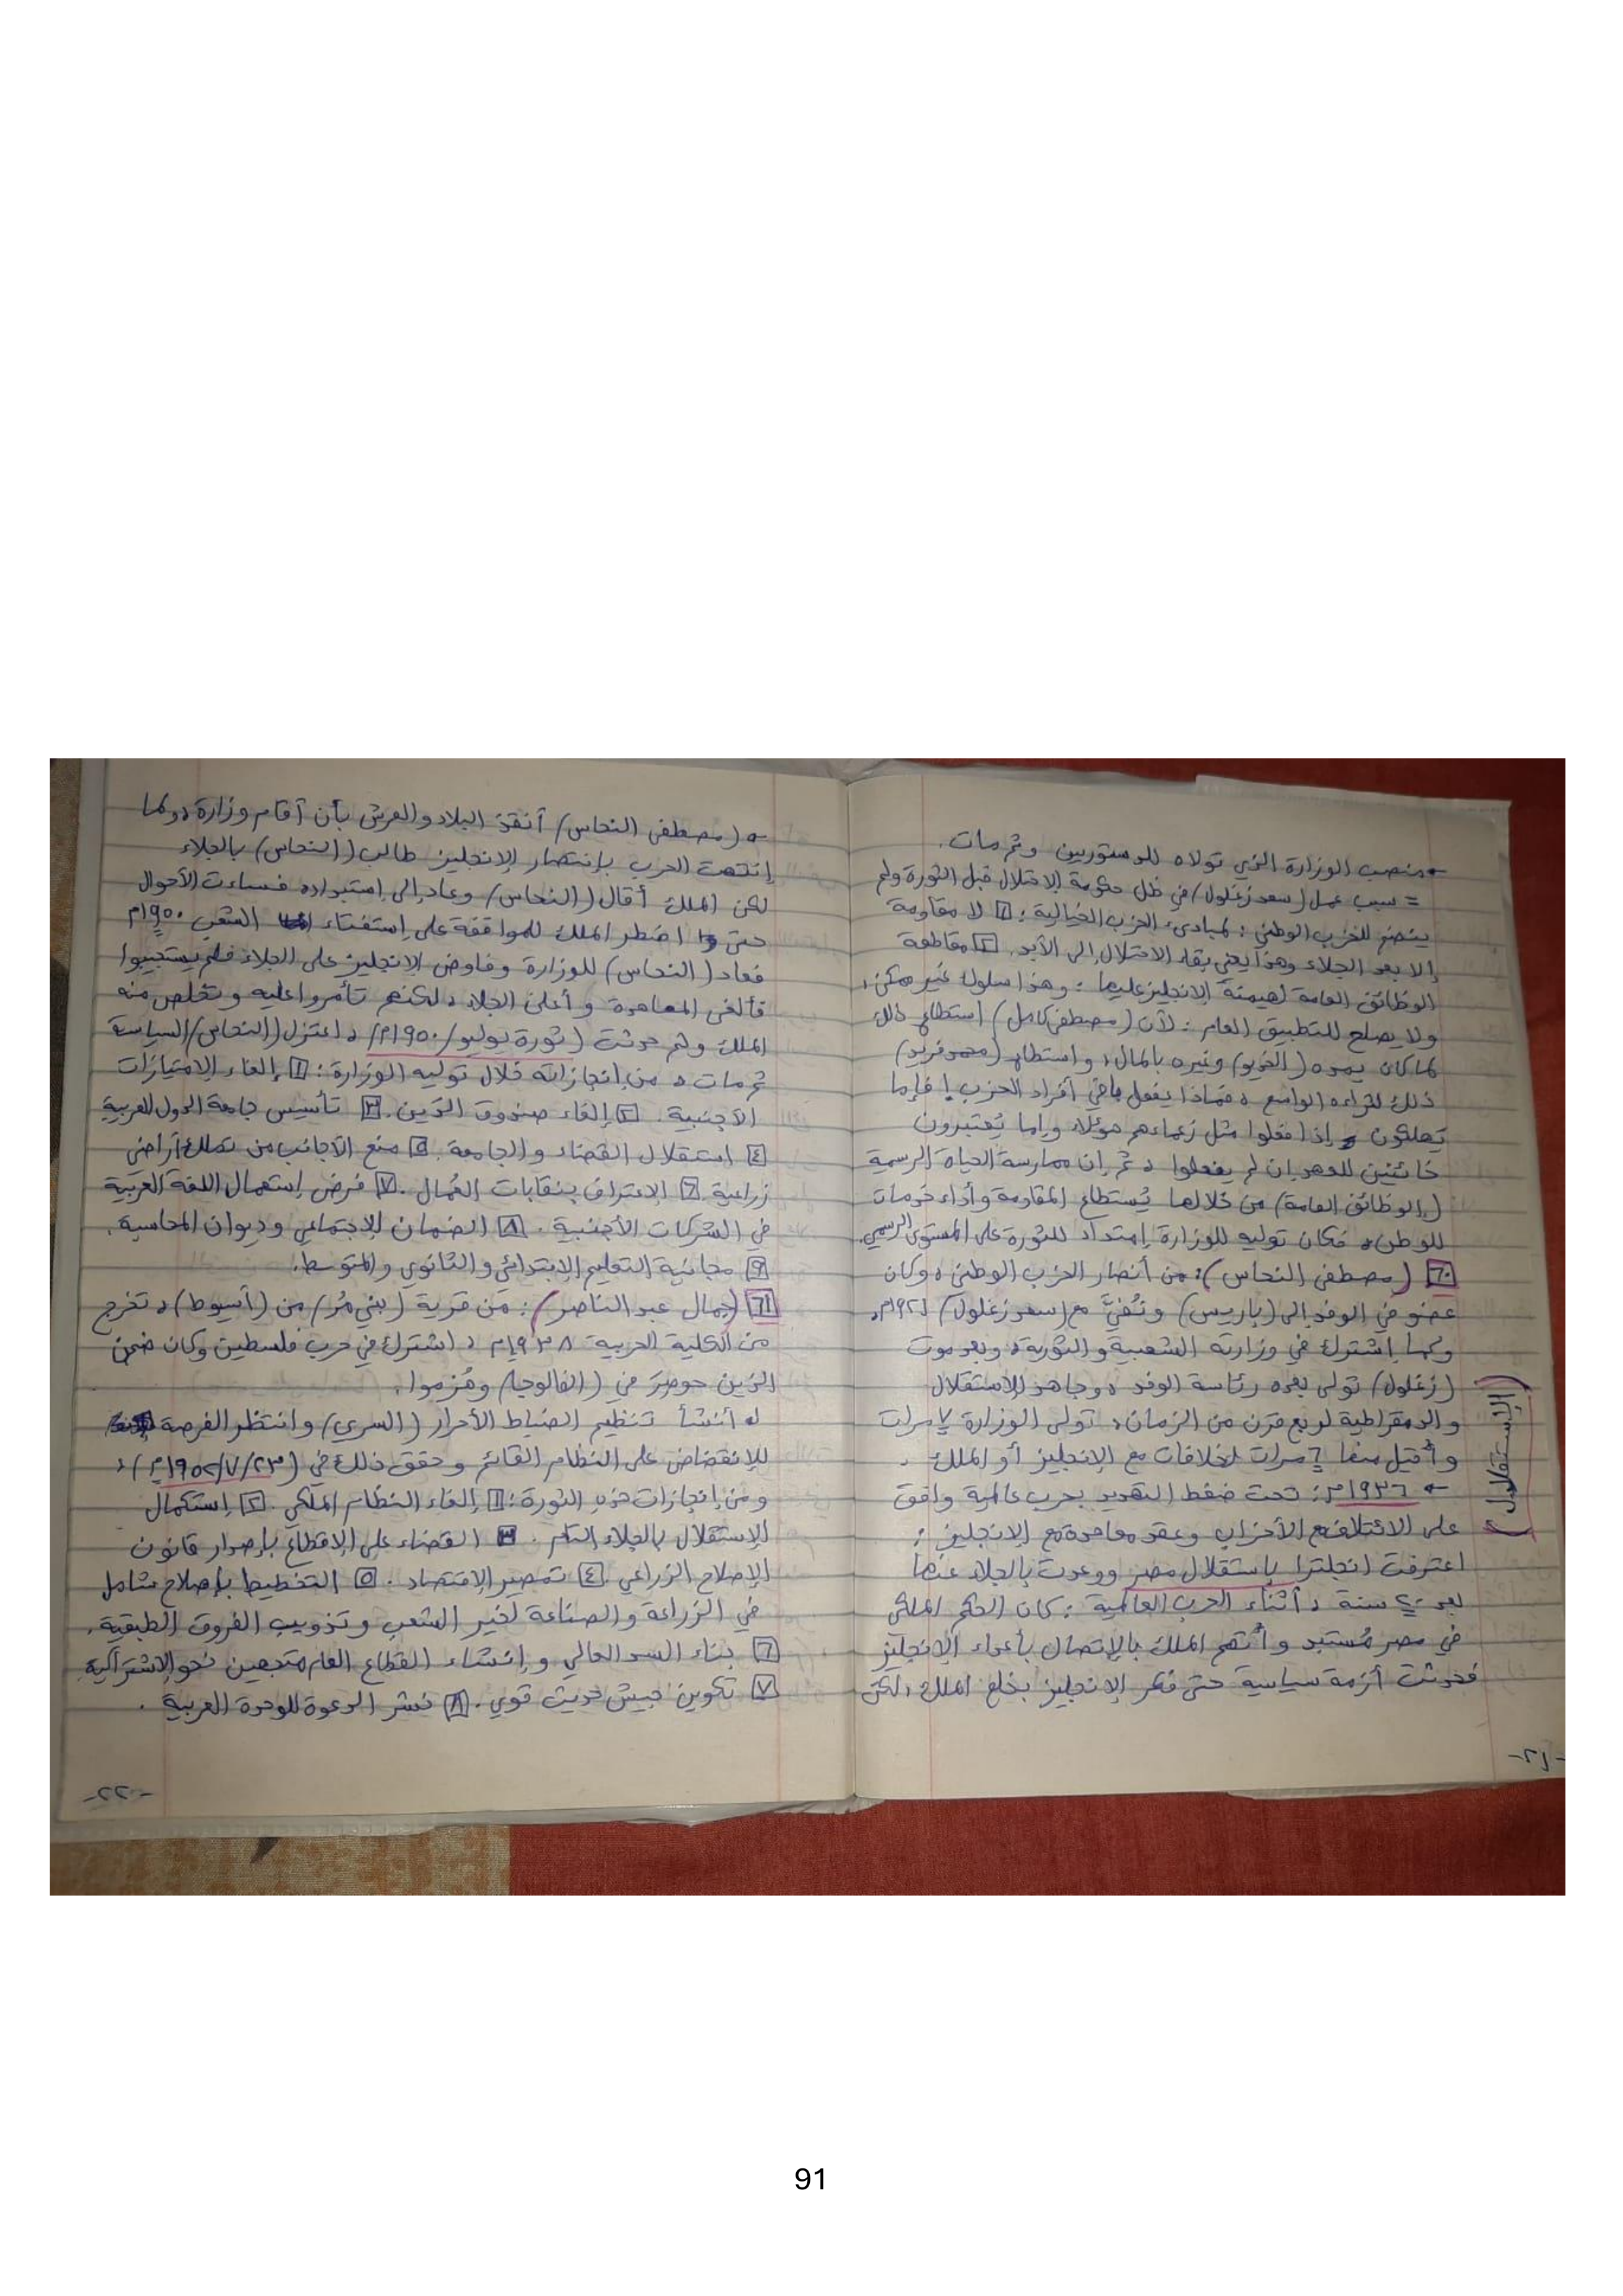 منصب الوزارة الذي تولاه للدستوريين وثم مات.
= سبب عمل (سعد زغلول) في ظل حكومة الاحتلال قبل الثورة ولم
ينضم للحزب الوطني: لمبادىء الحزب الخيالية: ١ لا مقاومة
إلا بعد الجلاء وهذا يعني بقاء الاحتلال إلى الأبد. ٢ مقاطعة
الوظائف العامة لهيمنة الإنجليز عليها: وهذا سلوك غير ممكن،
ولا يصلح للتطبيق العام: لأن (مصطفى كامل) استطاع ذلك
لما كان يمده (الخديو) وغيره بالمال، واستطاع (محمد فريد)
ذلك لثراءه الواسع، فماذا يفعل باقي أفراد الحزب! فإما
يهلكون إذا فعلوا مثل زعماءهم هؤلاء وإما يُعتبرون
خائنين للعهد إن لم يفعلوا، ثم إن ممارسة الحياة الرسمية
(الوظائف العامة) من خلالها يُستطاع المقاومة وأداء خدمات
للوطن، فكان توليه للوزارة إمتداد للثورة على المستوى الرسمي.
٦٠ (مصطفى النحاس): من أنصار الحزب الوطني، وكان
عضو في الوفد إلى (باريس) ونُفيَّ مع (سعد زغلول) ١٩٢١م،
وكما إشترك في وزارته الشعبية والثورة، وبعد موت
(زغلول) تولى بعده رئاسة الوفد، وجاهد للاستقلال
والدمقراطية لربع قرن من الزمان، تولى الوزارة ٧ مرات
وأُقيل منها ٦ مرات لخلافات مع الإنجليز أو الملك.
← ١٩٣٦م: تحت ضغط التهديد بحرب عالمية وافق
على الائتلاف مع الأحزاب وعقد معاهدة مع الإنجليز:
اعترفت انجلترا بإستقلال مصر ووعدت بالجلاء عنها
بعد ٢٠ سنة، أثناء الحرب العالمية: كان الحكم الملكي
في مصر مُستبد وأُتهم الملك بالإتصال بأعداء الإنجليز
فحدثت أزمة سياسية حتى فكر الإنجليز بخلع الملك، لكن
(الإستقلال)
-٢١-
(مصطفى النحاس) أنقذ البلاد والعرش بأن أقام وزارة، ولما
إنتهت الحرب بإنتصار الإنجليز طالب (النحاس) بالجلاء
لكن الملك أقال (النحاس) وعاد إلى إستبداده فساءت الأحوال
حتى اضطر الملك للموافقة على إستفتاء الشعب ١٩٥٠م
فعاد (النحاس) للوزارة وفاوض الإنجليز على الجلاء فلم يستجيبوا
فألغى المعاهدة وأعلن الجلاء، لكنهم تأمروا عليه وتخلص منه
الملك ولم حدثت (ثورة يوليو/١٩٥٠م)، اعتزل (النحاس) السياسة
ثم مات، من إنجازاته خلال توليه الوزارة: ١ إلغاء الإمتيازات
الأجنبية. ٢ إلغاء صندوق الدَين. ٣ تأسيس جامعة الدول العربية
٤ استقلال القضاء والجامعة. ٥ منع الأجانب من تملك أراضى
زراعية. ٦ الاعتراف بنقابات العُمال. ٧ فرض إستعمال اللغة العربية
في الشركات الأجنبية. ٨ الضمان الإجتماعي وديوان المحاسبة.
٩ مجانية التعليم الإبتدائي والثانوي والمتوسط.
٦١ (جمال عبد الناصر): مَن قرية (بني مُر) من (أسيوط)، تخرج
من الكلية الحربية ١٩٣٨م، اشترك في حرب فلسطين وكان ضمن
الذين حوصرَ في (الفالوجا) وهُزموا.
أنشأ تنظيم الضباط الأحرار (السري) وانتظر الفرصة
للإنقضاض على النظام القائم وحقق ذلك في (٢٣/٧/١٩٥٢م)،
ومن إنجازات هذه الثورة: ١ إلغاء النظام الملكي. ٢ إستكمال
الإستقلال بالجلاء التام. ٣ القضاء على الإقطاع بإصدار قانون
الإصلاح الزراعي. ٤ تمصير الإقتصاد. ٥ التخطيط بإصلاح شامل
في الزراعة والصناعة لخير الشعب وتذويب الفروق الطبقية.
٦ بناء السد العالي وإنشاء القطاع العام متجهين نحو الإشتراكية
٧ تكوين جيش حديث قوي. ٨ نشر الدعوة للوحدة العربية.
-٢٢-
91